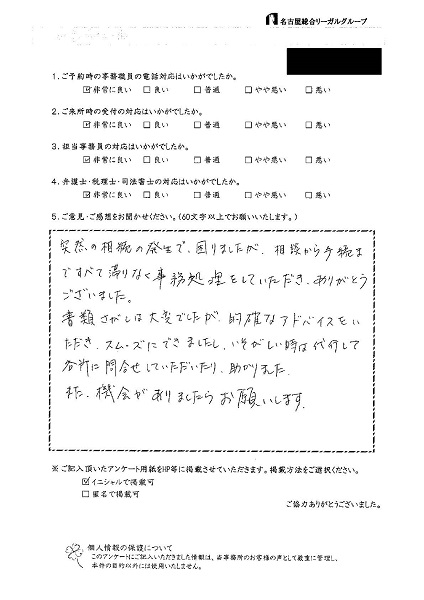 名古屋総合リーガルグループ
1.ご予約時の事務職員の電話対応はいかがでしたか。
☑非常に良い □良い □普通 □やや悪い □悪い
2.ご来所時の受付の対応はいかがでしたか。
☑非常に良い □良い □普通 □やや悪い □悪い
3.担当事務員の対応はいかがでしたか。
☑非常に良い □良い □普通 □やや悪い □悪い
4.弁護士・税理士・司法書士の対応はいかがでしたか。
☑非常に良い □良い □普通 □やや悪い □悪い
5.ご意見・ご感想をお聞かせください。(60文字以上でお願いいたします。)
突然の相続の発生で、困りましたが、相談から手続ま
ですべて滞りなく事務処理をしていただき、ありがとう
ございました。
書類さがしは大変でしたが、的確なアドバイスをい
ただき、スムーズにできましたし、いそがしい時は代行して
各所に問合せしていただいたり、助かりました。
また、機会がありましたらお願いします。
※ご記入頂いたアンケート用紙をHP等に掲載させていただきます。掲載方法をご選択ください。
☑イニシャルで掲載可
□匿名で掲載可
ご協力ありがとうございました。
個人情報の保護について
このアンケートにご記入いただきました情報は、当事務所のお客様の声として厳重に管理し、
本件の目的以外には使用いたしません。